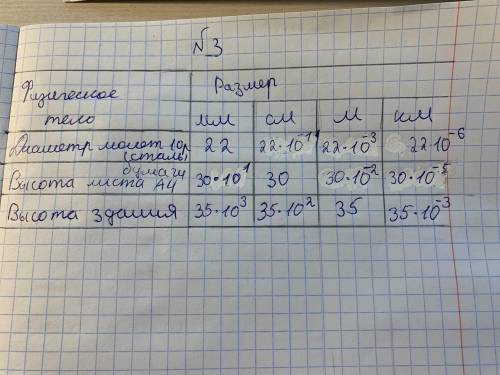 №3
Физическое тело | Размер
мм | см | м | км
Диаметр монет 10р (сталь) | 22 | 22·10⁻¹ | 22·10⁻³ | 22·10⁻⁶
Высота листа бумаги А4 | 30·10¹ | 30 | 30·10⁻² | 30·10⁻⁵
Высота здания | 35·10³ | 35·10² | 35 | 35·10⁻³